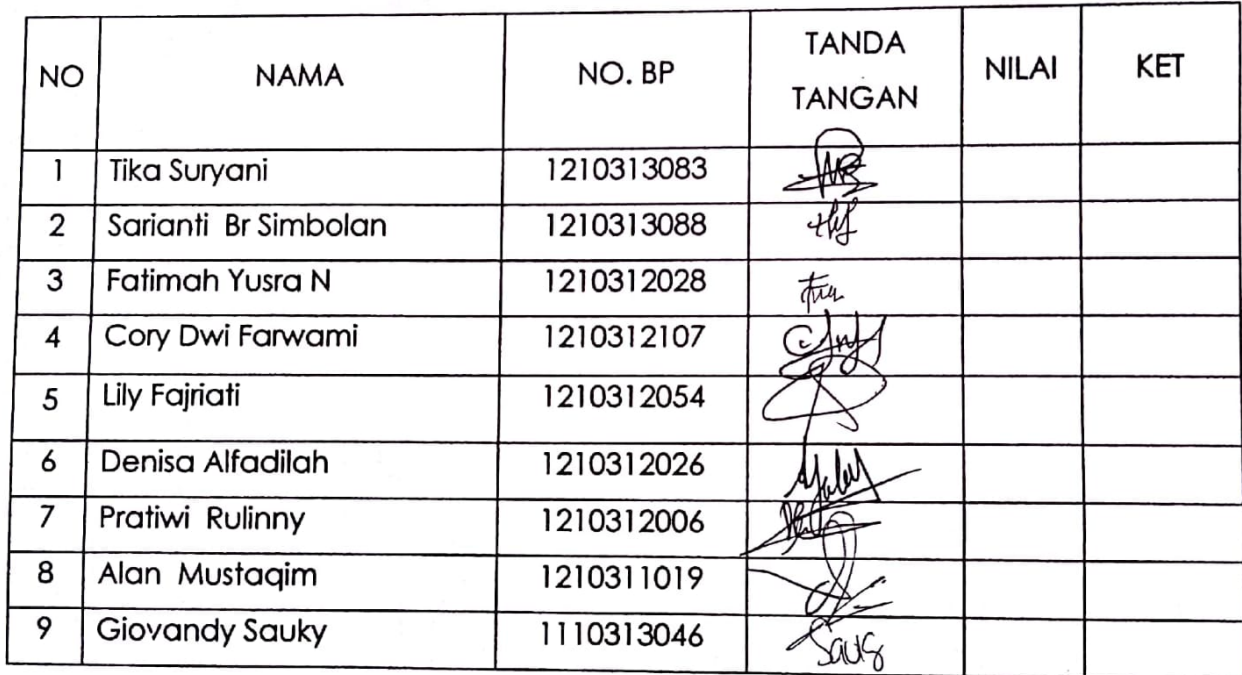 NO NAMA NO. BP TANDA TANGAN NILAI KET
1 Tika Suryani 1210313083
2 Sarianti Br Simbolan 1210313088
3 Fatimah Yusra N 1210312028
4 Cory Dwi Farwami 1210312107
5 Lily Fajriati 1210312054
6 Denisa Alfadilah 1210312026
7 Pratiwi Rulinny 1210312006
8 Alan Mustaqim 1210311019
9 Giovandy Sauky 1110313046